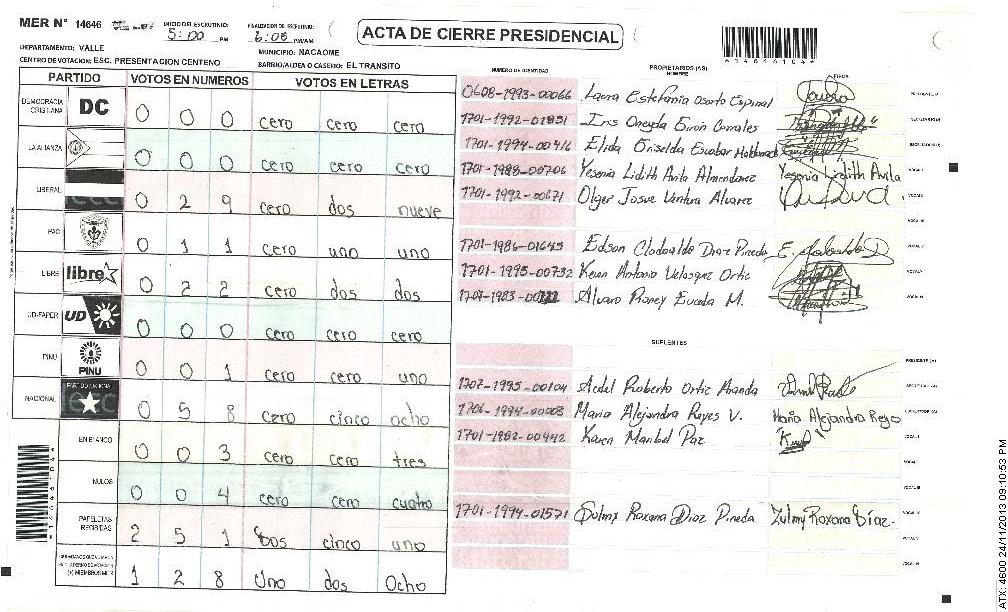 MER N° 14646
INICIO DEL ESCRUTINIO: 5:00 PM
FINALIZACION DE ESCRUTINIO: 6:05 PM/AM
ACTA DE CIERRE PRESIDENCIAL
DEPARTAMENTO: VALLE
MUNICIPIO: NACAOME
CENTRO DE VOTACION: ESC. PRESENTACION CENTENO
BARRIO/ALDEA O CASERIO: EL TRANSITO
PARTIDO VOTOS EN NUMEROS VOTOS EN LETRAS
DEMOCRACIA CRISTIANA DC 0 0 0 cero cero cero
LA ALIANZA 0 0 0 cero cero cero
LIBERAL 0 2 9 cero dos nueve
PAC 0 1 1 cero uno uno
LIBRE libre 0 2 2 cero dos dos
UD-FAPER UD 0 0 0 cero cero cero
PINU PINU 0 0 1 cero cero uno
NACIONAL 0 5 8 cero cinco ocho
EN BLANCO 0 0 3 cero cero tres
NULOS 0 0 4 cero cero cuatro
PAPELETAS RECIBIDAS 2 5 1 dos cinco uno
(+) MIEMBROS MER 1 2 8 Uno dos Ocho
NUMERO DE IDENTIDAD
PROPIETARIOS (AS)
NOMBRE
FIRMA
0608-1993-00066 Laura Estefania Osorto Espinal
1701-1992-01851 Iris Oneyda Giron Corrales
1701-1994-00416 Elida Griselda Escobar Maldonado
1701-1988-00706 Yesenia Lidith Avila Almendarez Yesenia Lidith Avila
1701-1992-00671 Olger Josue Ventura Alvarez
1701-1986-01645 Edson Clodoaldo Diaz Pineda
1701-1995-00732 Kevin Antonio Velasquez Ortiz
Alvaro Raney Euceda M.
SUPLENTES
1707-1995-00104 Aedel Roberto Ortiz Aranda
1706-1994-00008 Maria Alejandra Reyes V. Maria Alejandra Reyes
1701-1982-00442 Karen Maribel Paz
1701-1994-01571 Zulmy Roxana Diaz Pineda Zulmy Roxana Díaz.
ATX: 4600 24/11/2013 09:10:53 PM